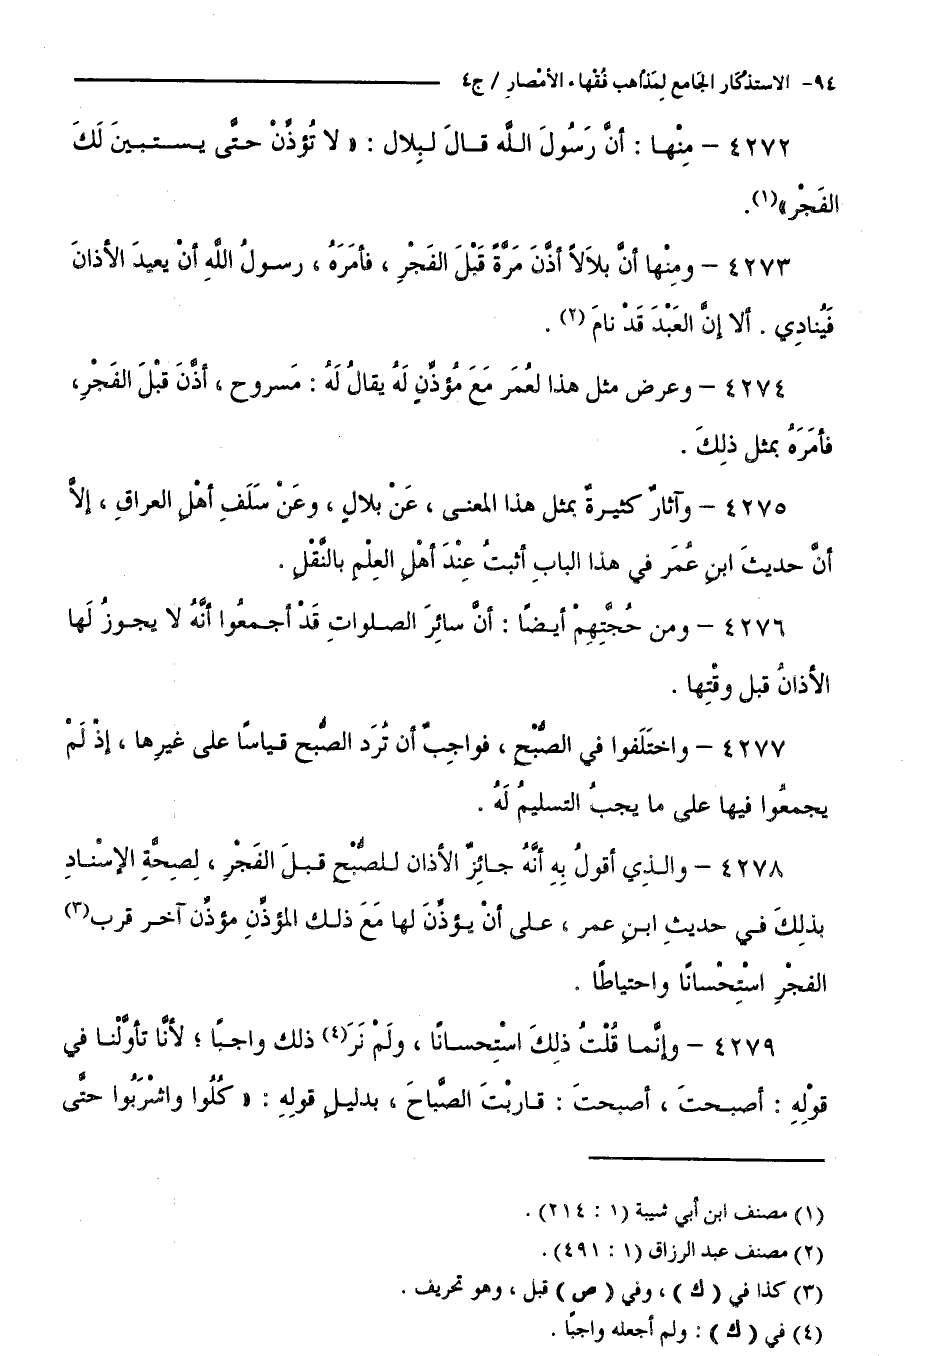 ٩٤- الاستذكار الجامع لمَذاهب فُقهاء الأمْصارِ / ج٤
٤٢٧٢ – مِنْها : أنَّ رَسُولَ اللَّه قالَ لبِلال : « لا تُؤذِّنْ حتَّى يستبينَ لَكَ
الفَجْر»(١).
٤٢٧٣ – ومِنْها أنَّ بلاَلاً أذَّنَ مَرَّةً قَبْلَ الفَجْرِ ، فأمَرَهُ ، رسولُ اللَّهِ أنْ يعيدَ الأذانَ
فَيُنادِي . ألا إنَّ العَبْدَ قَدْ نامَ (٢) .
٤٢٧٤ – وعرض مثل هذا لعُمَر مَعَ مُؤذِّنٍ لَهُ يقالُ لَهُ : مَسروح ، أذَّنَ قبْلَ الفَجْرِ،
فأمَرَهُ بمثل ذلِكَ .
٤٢٧٥ – وآثارٌ كثيرةٌ بمثل هذا المعنى ، عَنْ بلالٍ ، وعَنْ سَلَفِ أهْلِ العراقِ ، إلاَّ
أنَّ حديثَ ابنِ عُمَر في هذا البابِ أثبتُ عِنْدَ أهْلِ العِلْمِ بالنَّقْلِ .
٤٢٧٦ – ومن حُجَّتِهِمْ أيضًا : أنَّ سائِرَ الصلواتِ قَدْ أجمعُوا أنَّهُ لا يجوزُ لَها
الأذانُ قبل وقْتِها .
٤٢٧٧ – واختَلَفوا في الصُّبْحِ ، فواجِبٌ أن تُرَد الصُّبح قياسًا على غيرِها ، إذْ لَمْ
يجمعُوا فيها على ما يجبُ التسليمُ لَهُ .
٤٢٧٨ – والذِي أقولُ بِهِ أنَّهُ جائِزٌ الأذان للصُّبْحِ قبلَ الفَجْرِ ، لِصِحَّةِ الإسْنادِ
بذلِكَ في حديثِ ابنِ عمر ، على أنْ يؤذِّنَ لها مَعَ ذلك المؤذِّنِ مؤذِّن آخر قرب(٣)
الفجْرِ اسْتِحْسانًا واحتياطًا .
٤٢٧٩ – وإنَّما قُلْتُ ذلِكَ اسْتِحسانًا ، ولَمْ نَرَ(٤) ذلك واجبًا ؛ لأنَّا تأوَّلْنا في
قوْلِهِ : أصبحتَ ، أصبحتَ : قاربْتَ الصَّباحَ ، بدليلِ قولِهِ : « كُلُوا واشْرَبُوا حتَّى
(١) مصنف ابن أبي شيبة (١ : ٢١٤) .
(٢) مصنف عبد الرزاق (١ : ٤٩١) .
(٣) كذا في ( ك ) ، وفي ( ص ) قبل ، وهو تحريف .
(٤) في ( ك ) : ولم أجعله واجبًا .